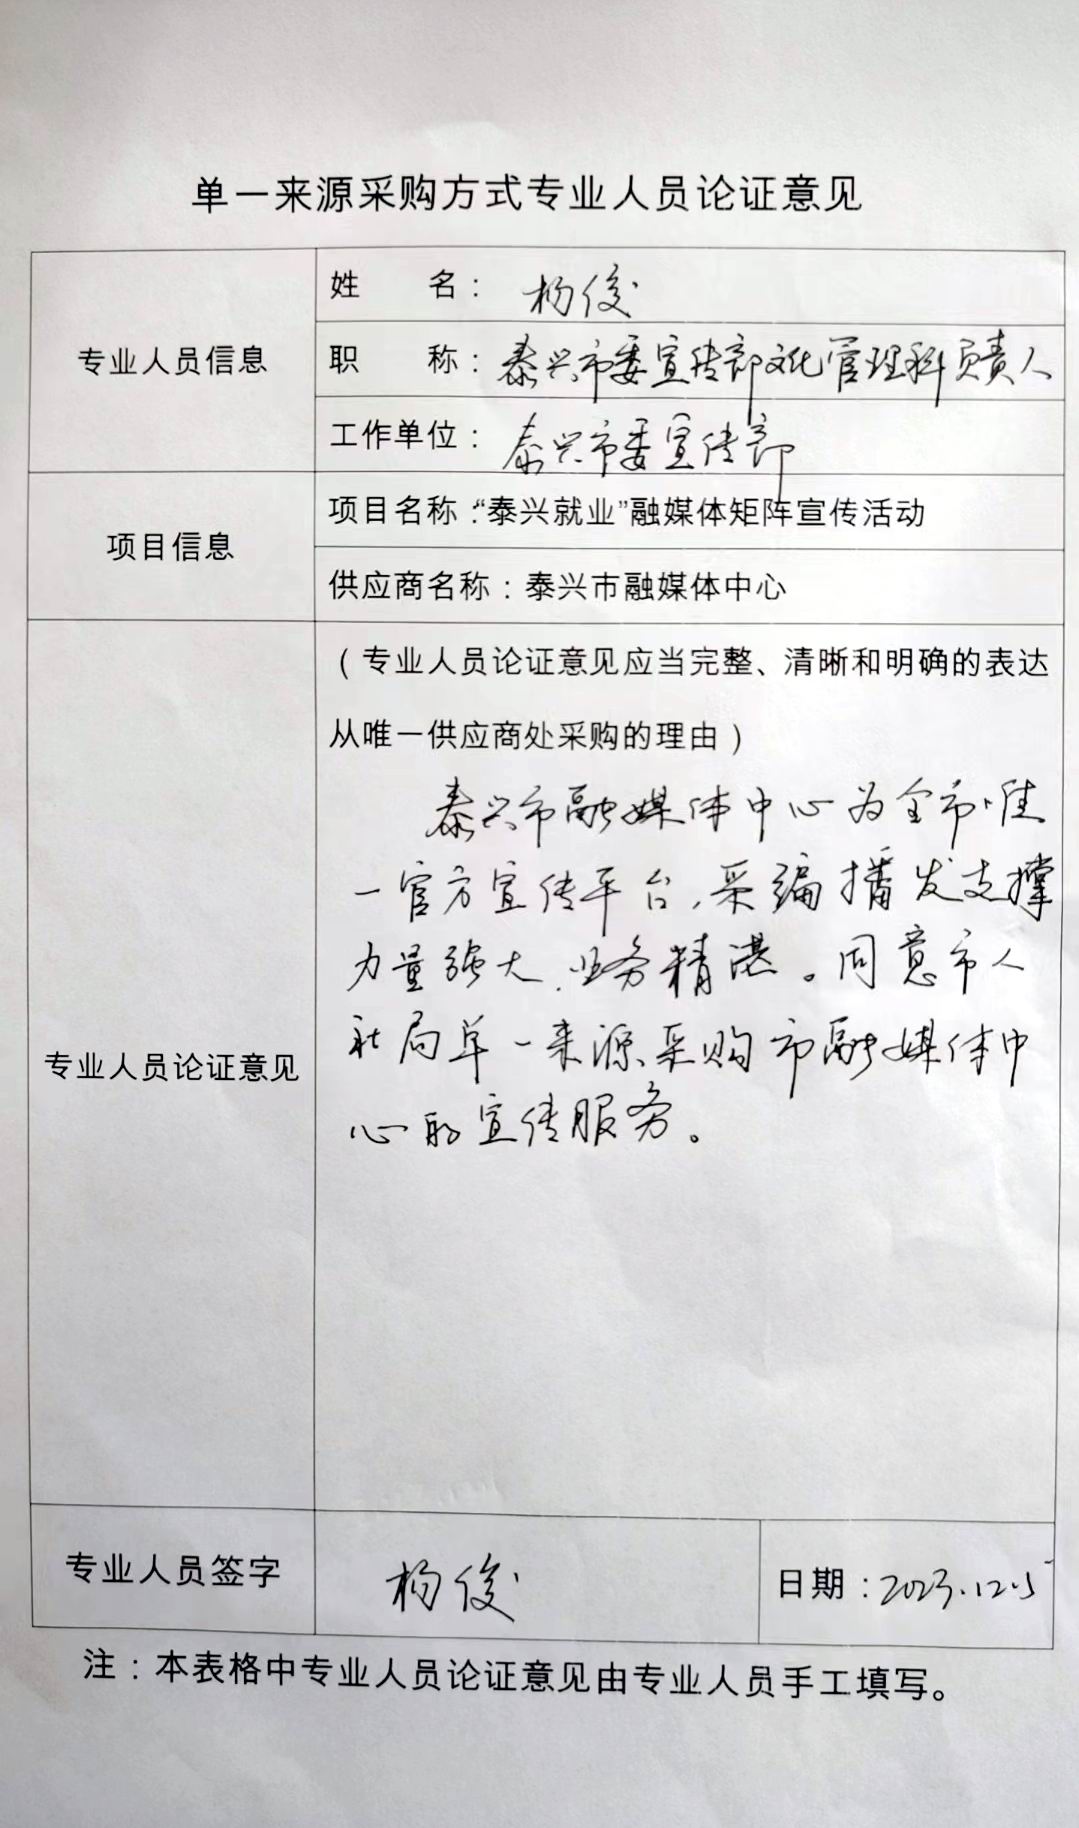 单一来源采购方式专业人员论证意见
专业人员信息
姓 名：杨俊
职 称：泰兴市委宣传部文化管理科负责人
工作单位：泰兴市委宣传部
项目信息
项目名称：“泰兴就业”融媒体矩阵宣传活动
供应商名称：泰兴市融媒体中心
专业人员论证意见
（专业人员论证意见应当完整、清晰和明确的表达
从唯一供应商处采购的理由）
泰兴市融媒体中心为全市唯
一官方宣传平台，采编播发支撑
力量强大，业务精湛。同意市人
社局单一来源采购市融媒体中
心的宣传服务。
专业人员签字
杨俊
日期：2023.12.5
注：本表格中专业人员论证意见由专业人员手工填写。